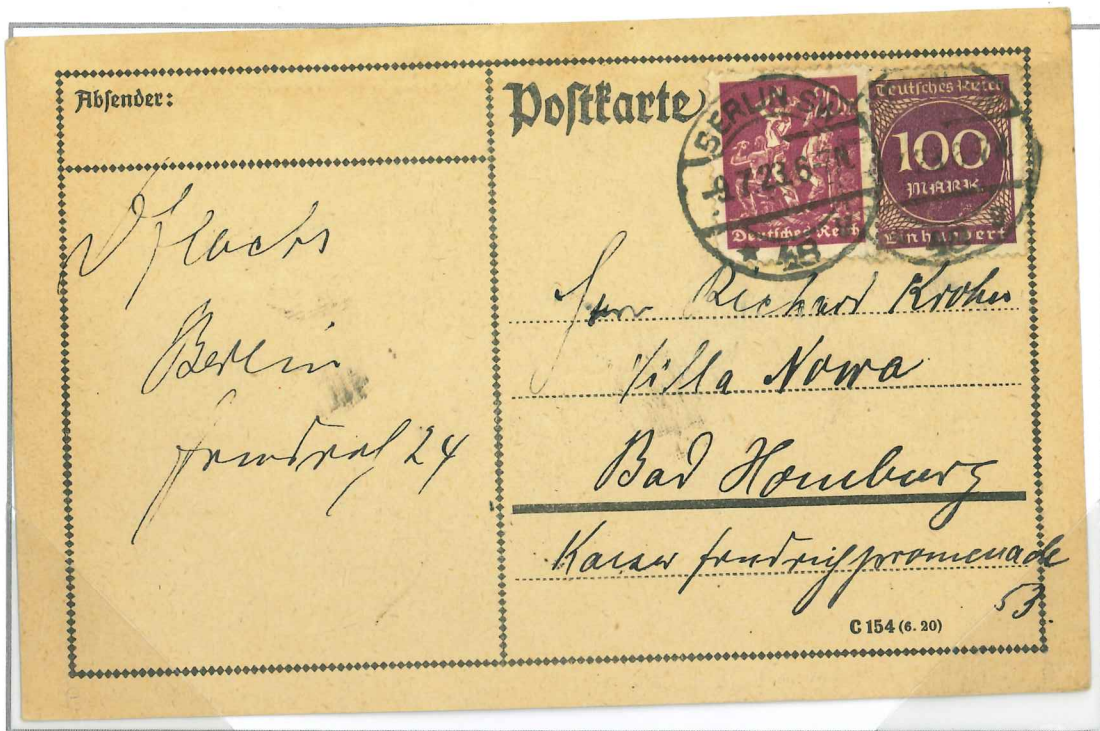 Absender:
Postkarte
BERLIN SW
9.7.23.6-7N.
* 48
Deutsches Reich
Deutsches Reich
100
MARK
Einhundert
Berlin
24
Herr Richard Krohn
Villa Nowa
Bad Homburg
Kaiser Friedrichpromenade
53.
C 154 (6. 20)